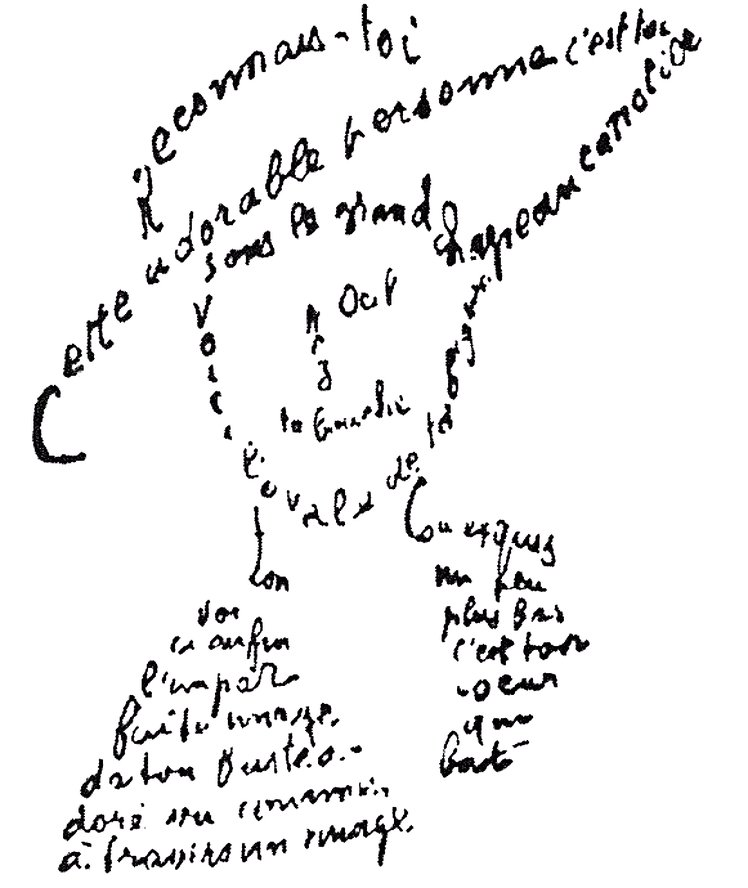 Reconnais-toi
Cette adorable personne c'est toi
sous le grand chapeau canotier
Oeil
Nez
ta bouche
Voici l'ovale de ta figure
Ton
cou exquis
Voi
ci enfin
l'impar
faite image
de ton buste a
doré vu comme
à travers un nuage
un peu
plus bas
c'est ton
coeur
qui
bat